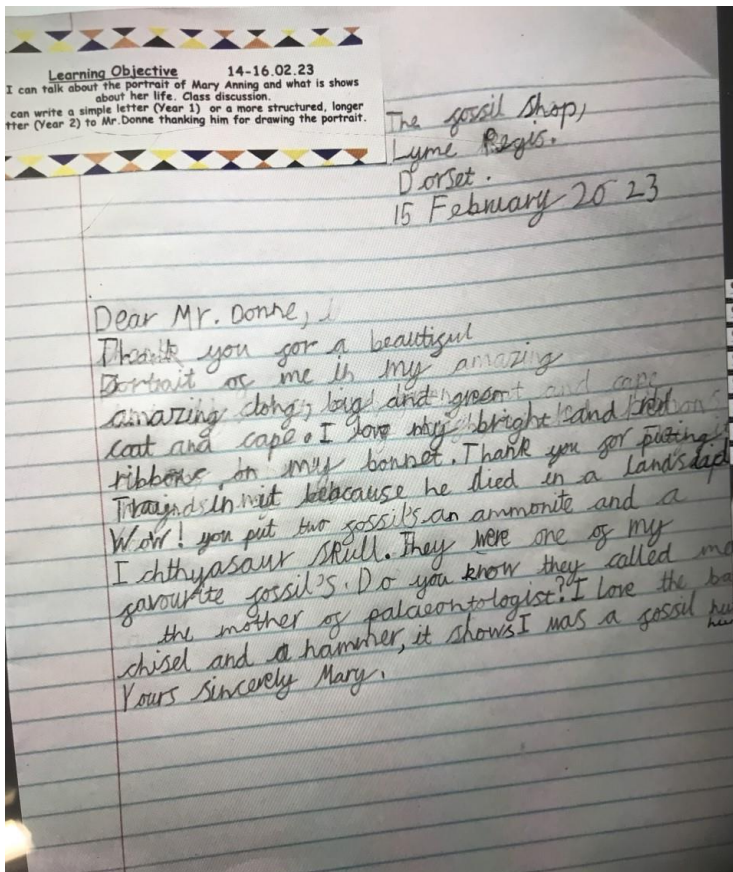 Learning Objective 14-16.02.23
I can talk about the portrait of Mary Anning and what is shows
about her life. Class discussion.
can write a simple letter (Year 1) or a more structured, longer
tter (Year 2) to Mr.Donne thanking him for drawing the portrait.
The fossil shop,
Lyme Regis.
Dorset.
15 February 2023
Dear Mr. Donne,
Thank you for a beautiful
Portrait of me in my amazing
amazing long, big and green
coat and cape. I love my bright and red
ribbons on my bonnet. Thank you for puting
in it bebcause he died in a landsdap
Wow! you put two fossil's an ammonite and a
Ichthyasaur skull. They were one of my
favourite fossil's. Do you know they called me
the mother of palaeontologist? I love the ba
chisel and a hammer, it shows I was a fossil hu
Yours sincerely Mary.